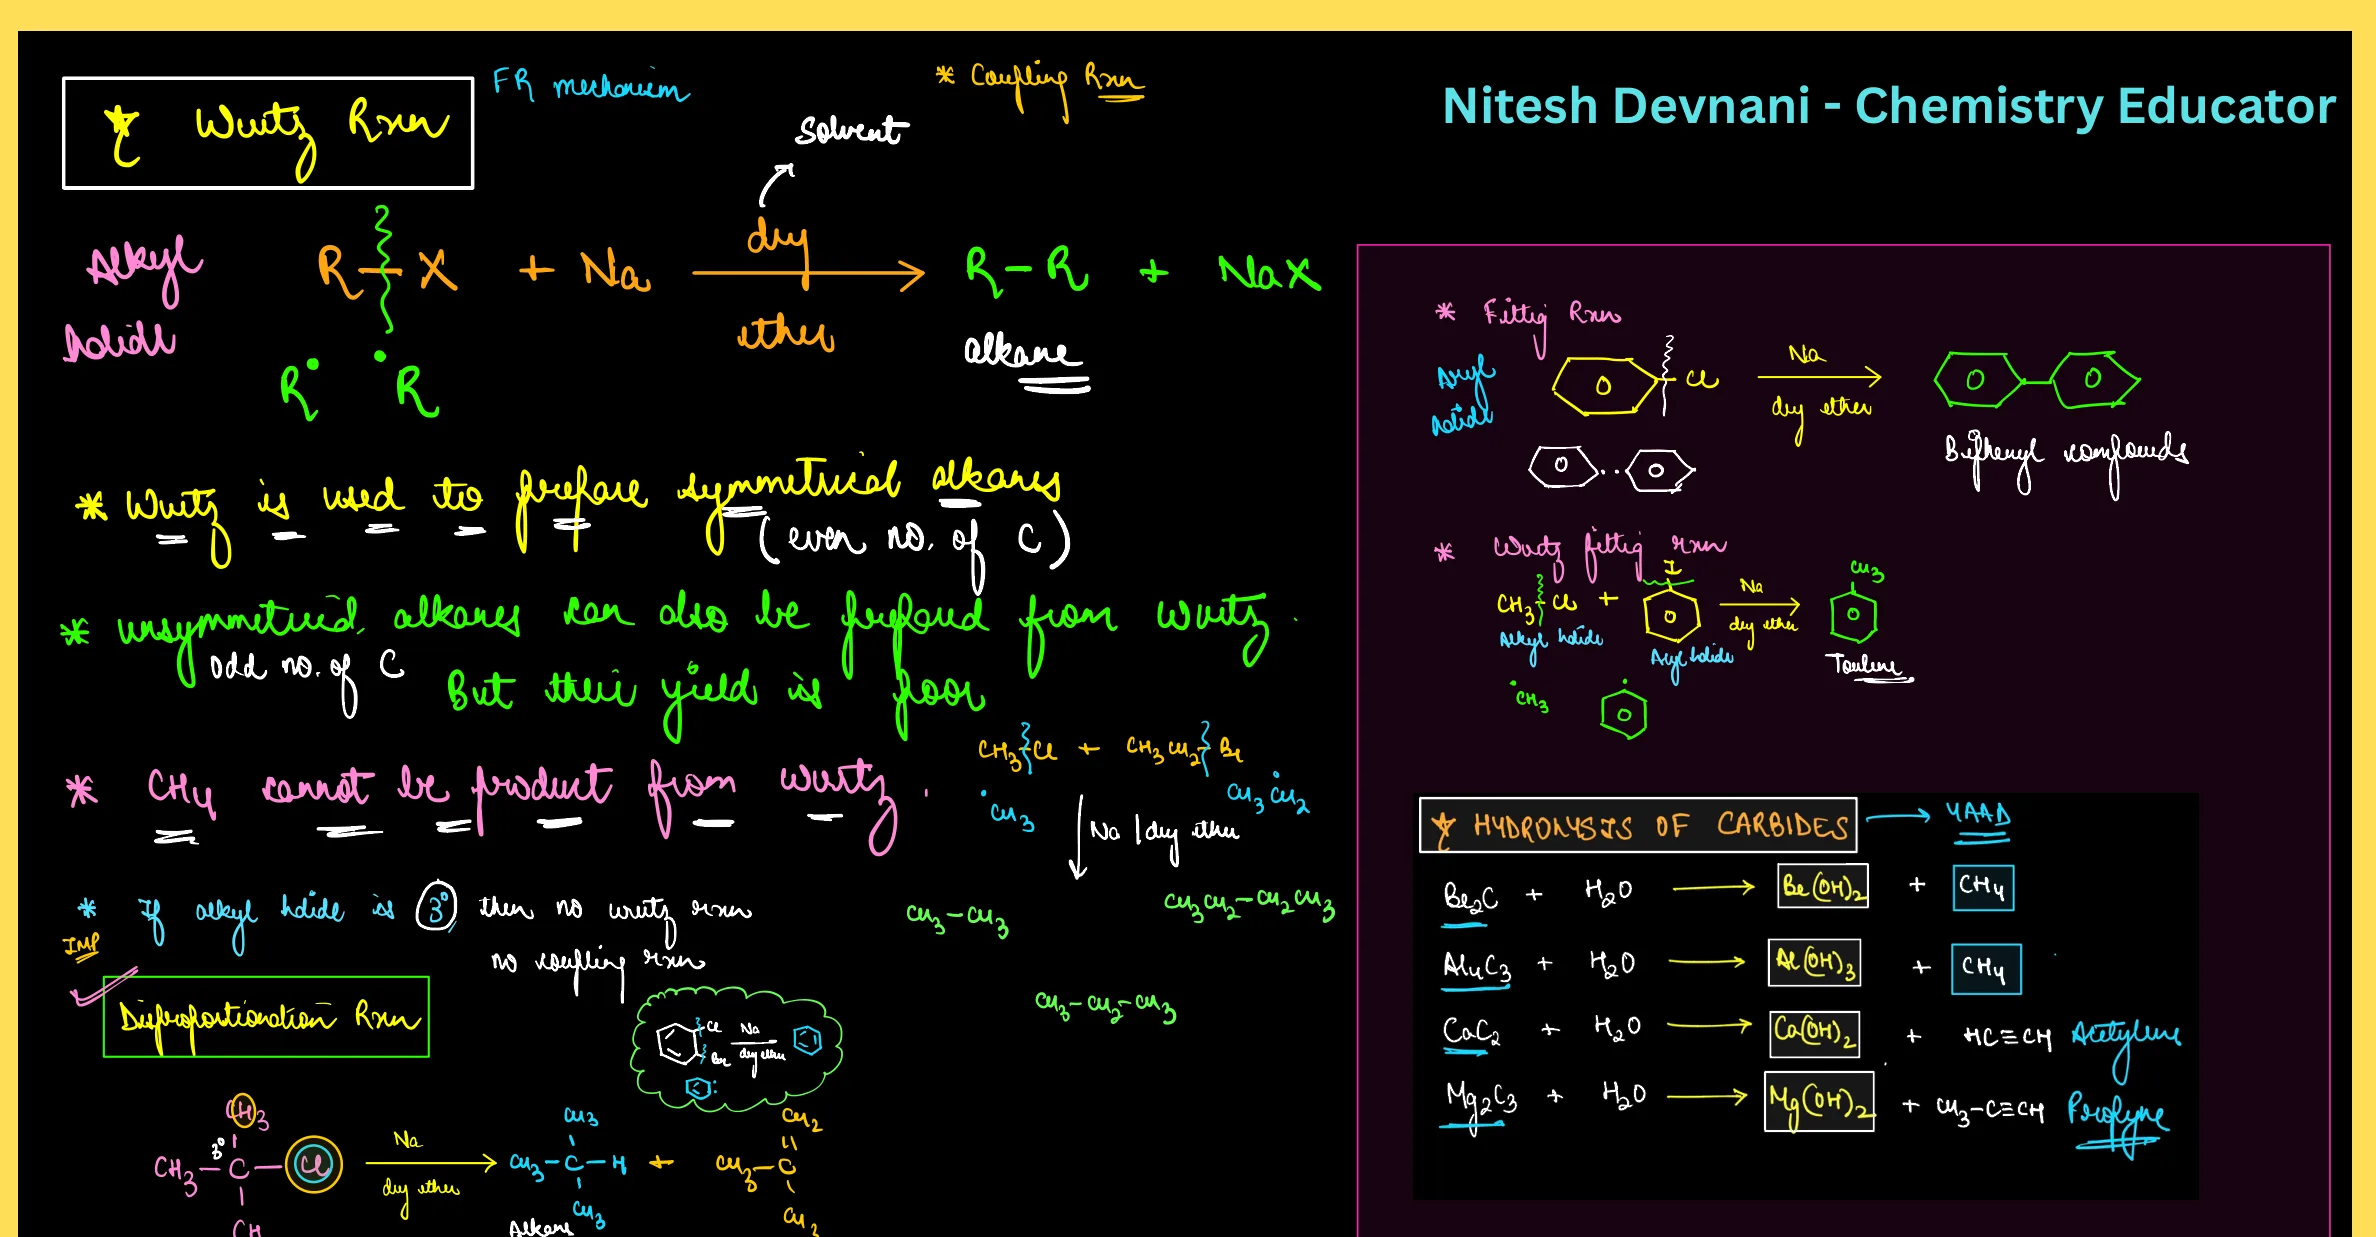 Wurtz Rxn
FR mechanism
* Coupling Rxn
Nitesh Devnani - Chemistry Educator
Solvent
Alkyl halide
R-X + Na dry ether → R-R + NaX
alkane
R• •R
* Wurtz is used to prepare symmetrical alkanes
(even no. of C)
* unsymmetrical alkanes can also be prepared from wurtz.
odd no. of C
But their yield is poor
* CH4 cannot be product from wurtz.
CH3-Cl + CH3CH2-Br
•CH3 CH3ĊH2
Na | dry ether
CH3-CH3 CH3CH2-CH2CH3
CH3-CH2-CH3
* If alkyl halide is 3° then no wurtz rxn
IMP
no coupling rxn
Disproportionation Rxn
Cl Br Na dry ether
CH3
3°
CH3-C-Cl Na dry ether → CH3-C-H + CH3-C
CH3 CH2
CH3 CH3
Alkane
* Fittig Rxn
Aryl halide
Cl Na dry ether
Biphenyl compounds
* Wurtz fittig rxn
CH3-Cl + I Na dry ether → CH3
Alkyl halide Aryl halide
Toulene
•CH3
HYDROLYSIS OF CARBIDES → YAAD
Be2C + H2O → Be(OH)2 + CH4
Al4C3 + H2O → Al(OH)3 + CH4
CaC2 + H2O → Ca(OH)2 + HC≡CH Acetylene
Mg2C3 + H2O → Mg(OH)2 + CH3-C≡CH Propyne